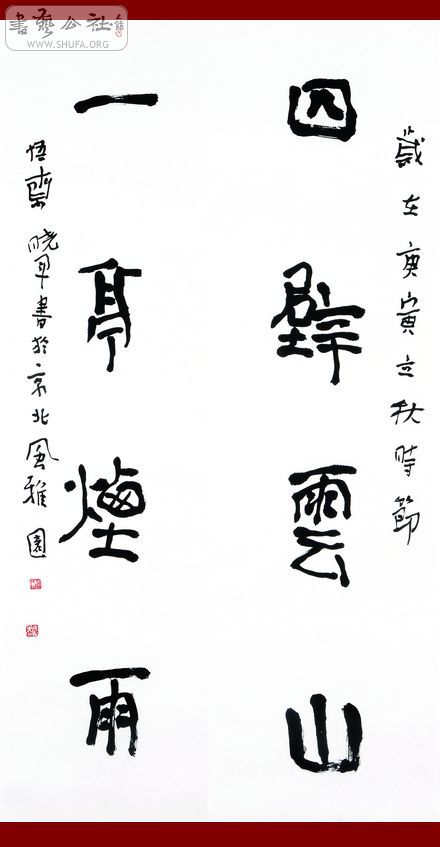 書藝公社
WWW.SHUFA.ORG
歲在庚寅立秋時節
四壁雲山
一亭煙雨
悟齋晓军書於京北風雅園